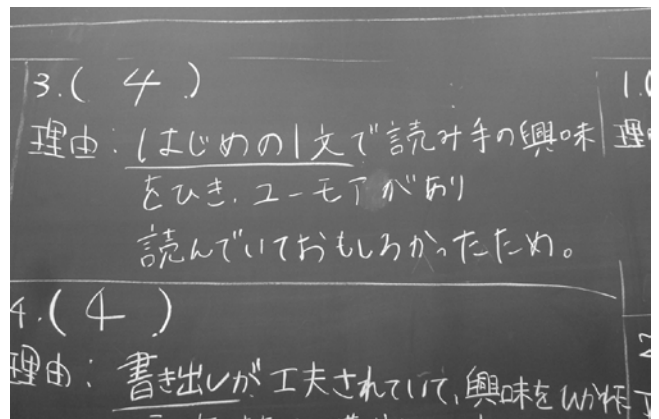 3.( 4 )
理由:はじめの1文で読み手の興味
をひき、ユーモアがあり
読んでいておもしろかったため。
4.( 4 )
理由:書き出しが工夫されていて、興味をひかれ
1.(
理